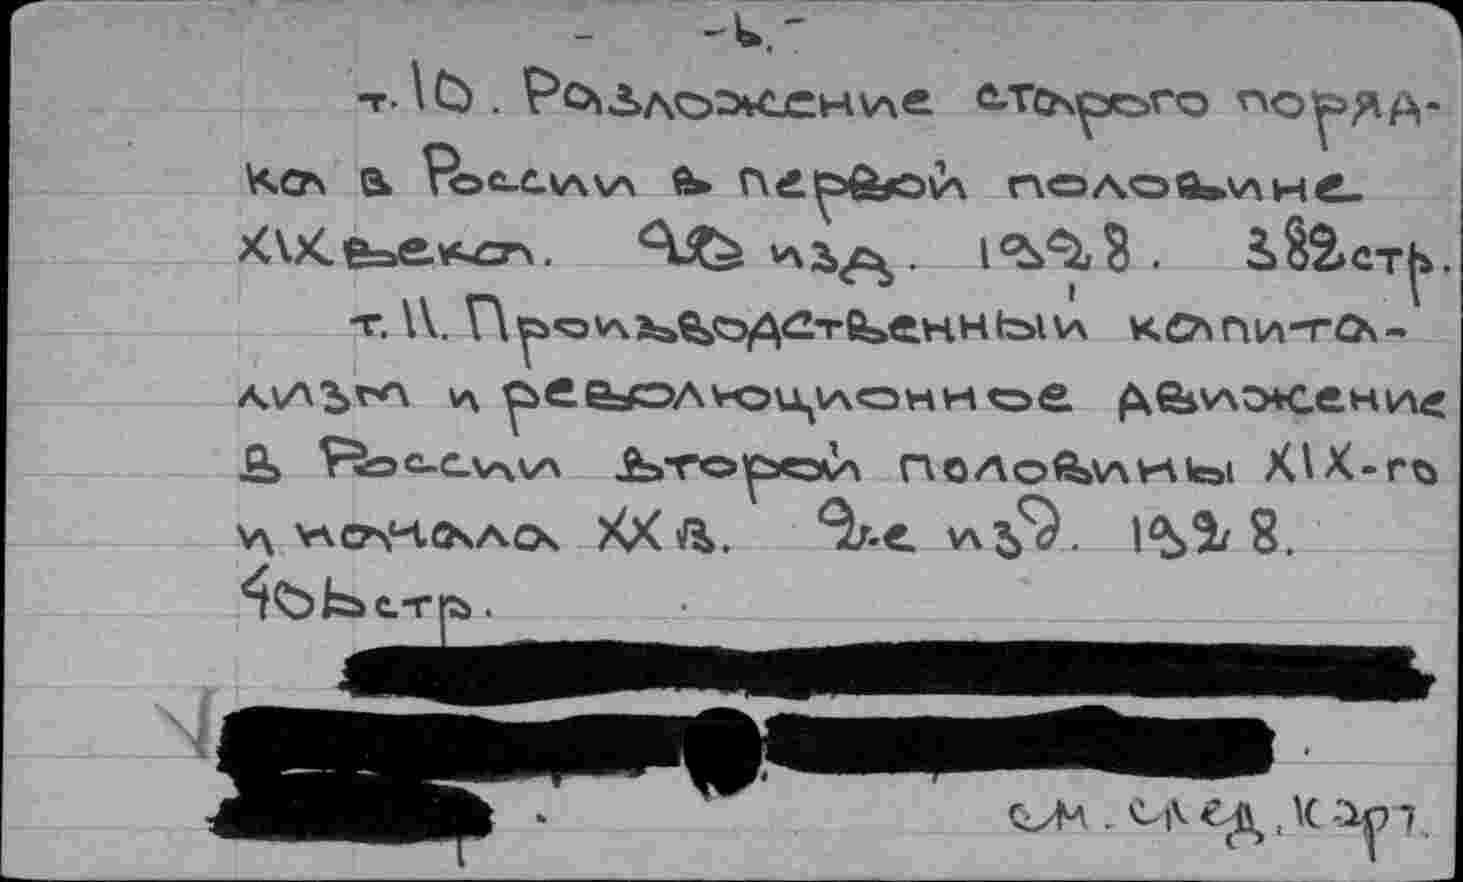 - ь. -
т. 10. Разложение старого поряд-
ка в России в первой половине
XIX века. изд. 1928. 382 стр.
т. 11. Производственный капита-
лизм и революционное движение
в России второй половины XIX-го
и начала XX в. 2-е изд. 1928.
стр.
см. след. карт.